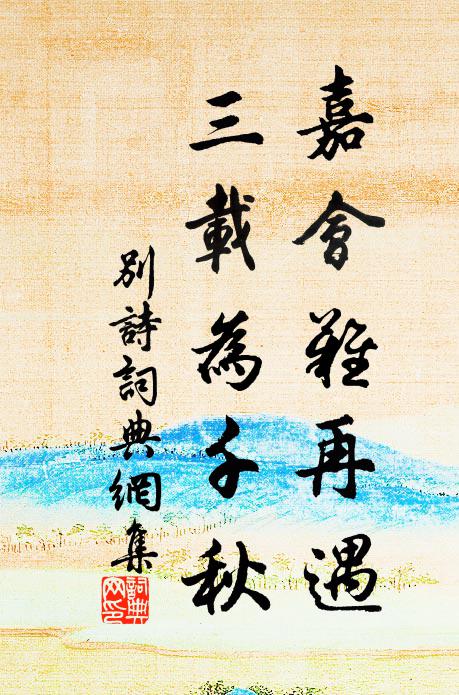 嘉會難再遇
三載為千秋
別詩詞典網集
詞典